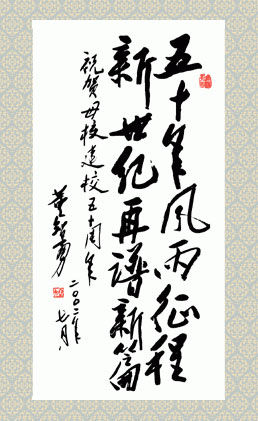 五十年风雨征程
新世纪再谱新篇
祝贺母校建校五十周年
董智勇
二〇〇二年
七月